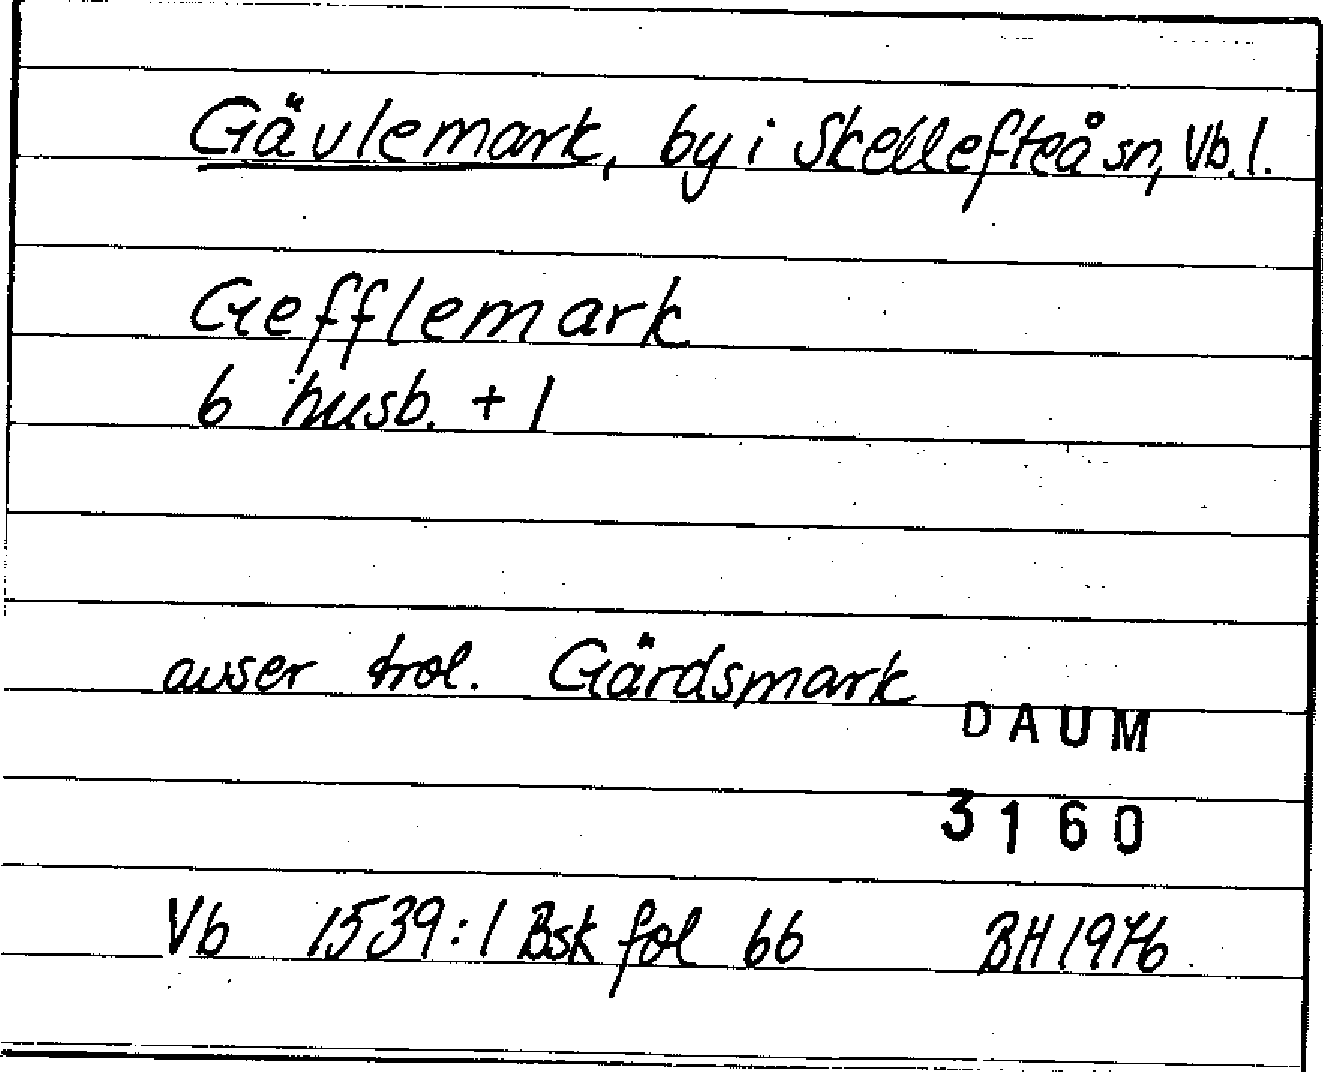 Gävlemark, by i Skellefteå sn, Vb. l.
Gefflemark
6 husb. + 1
avser trol. Gärdsmark
DAUM
3160
Vb 1539:1 Bsk fol 66 BH 1976